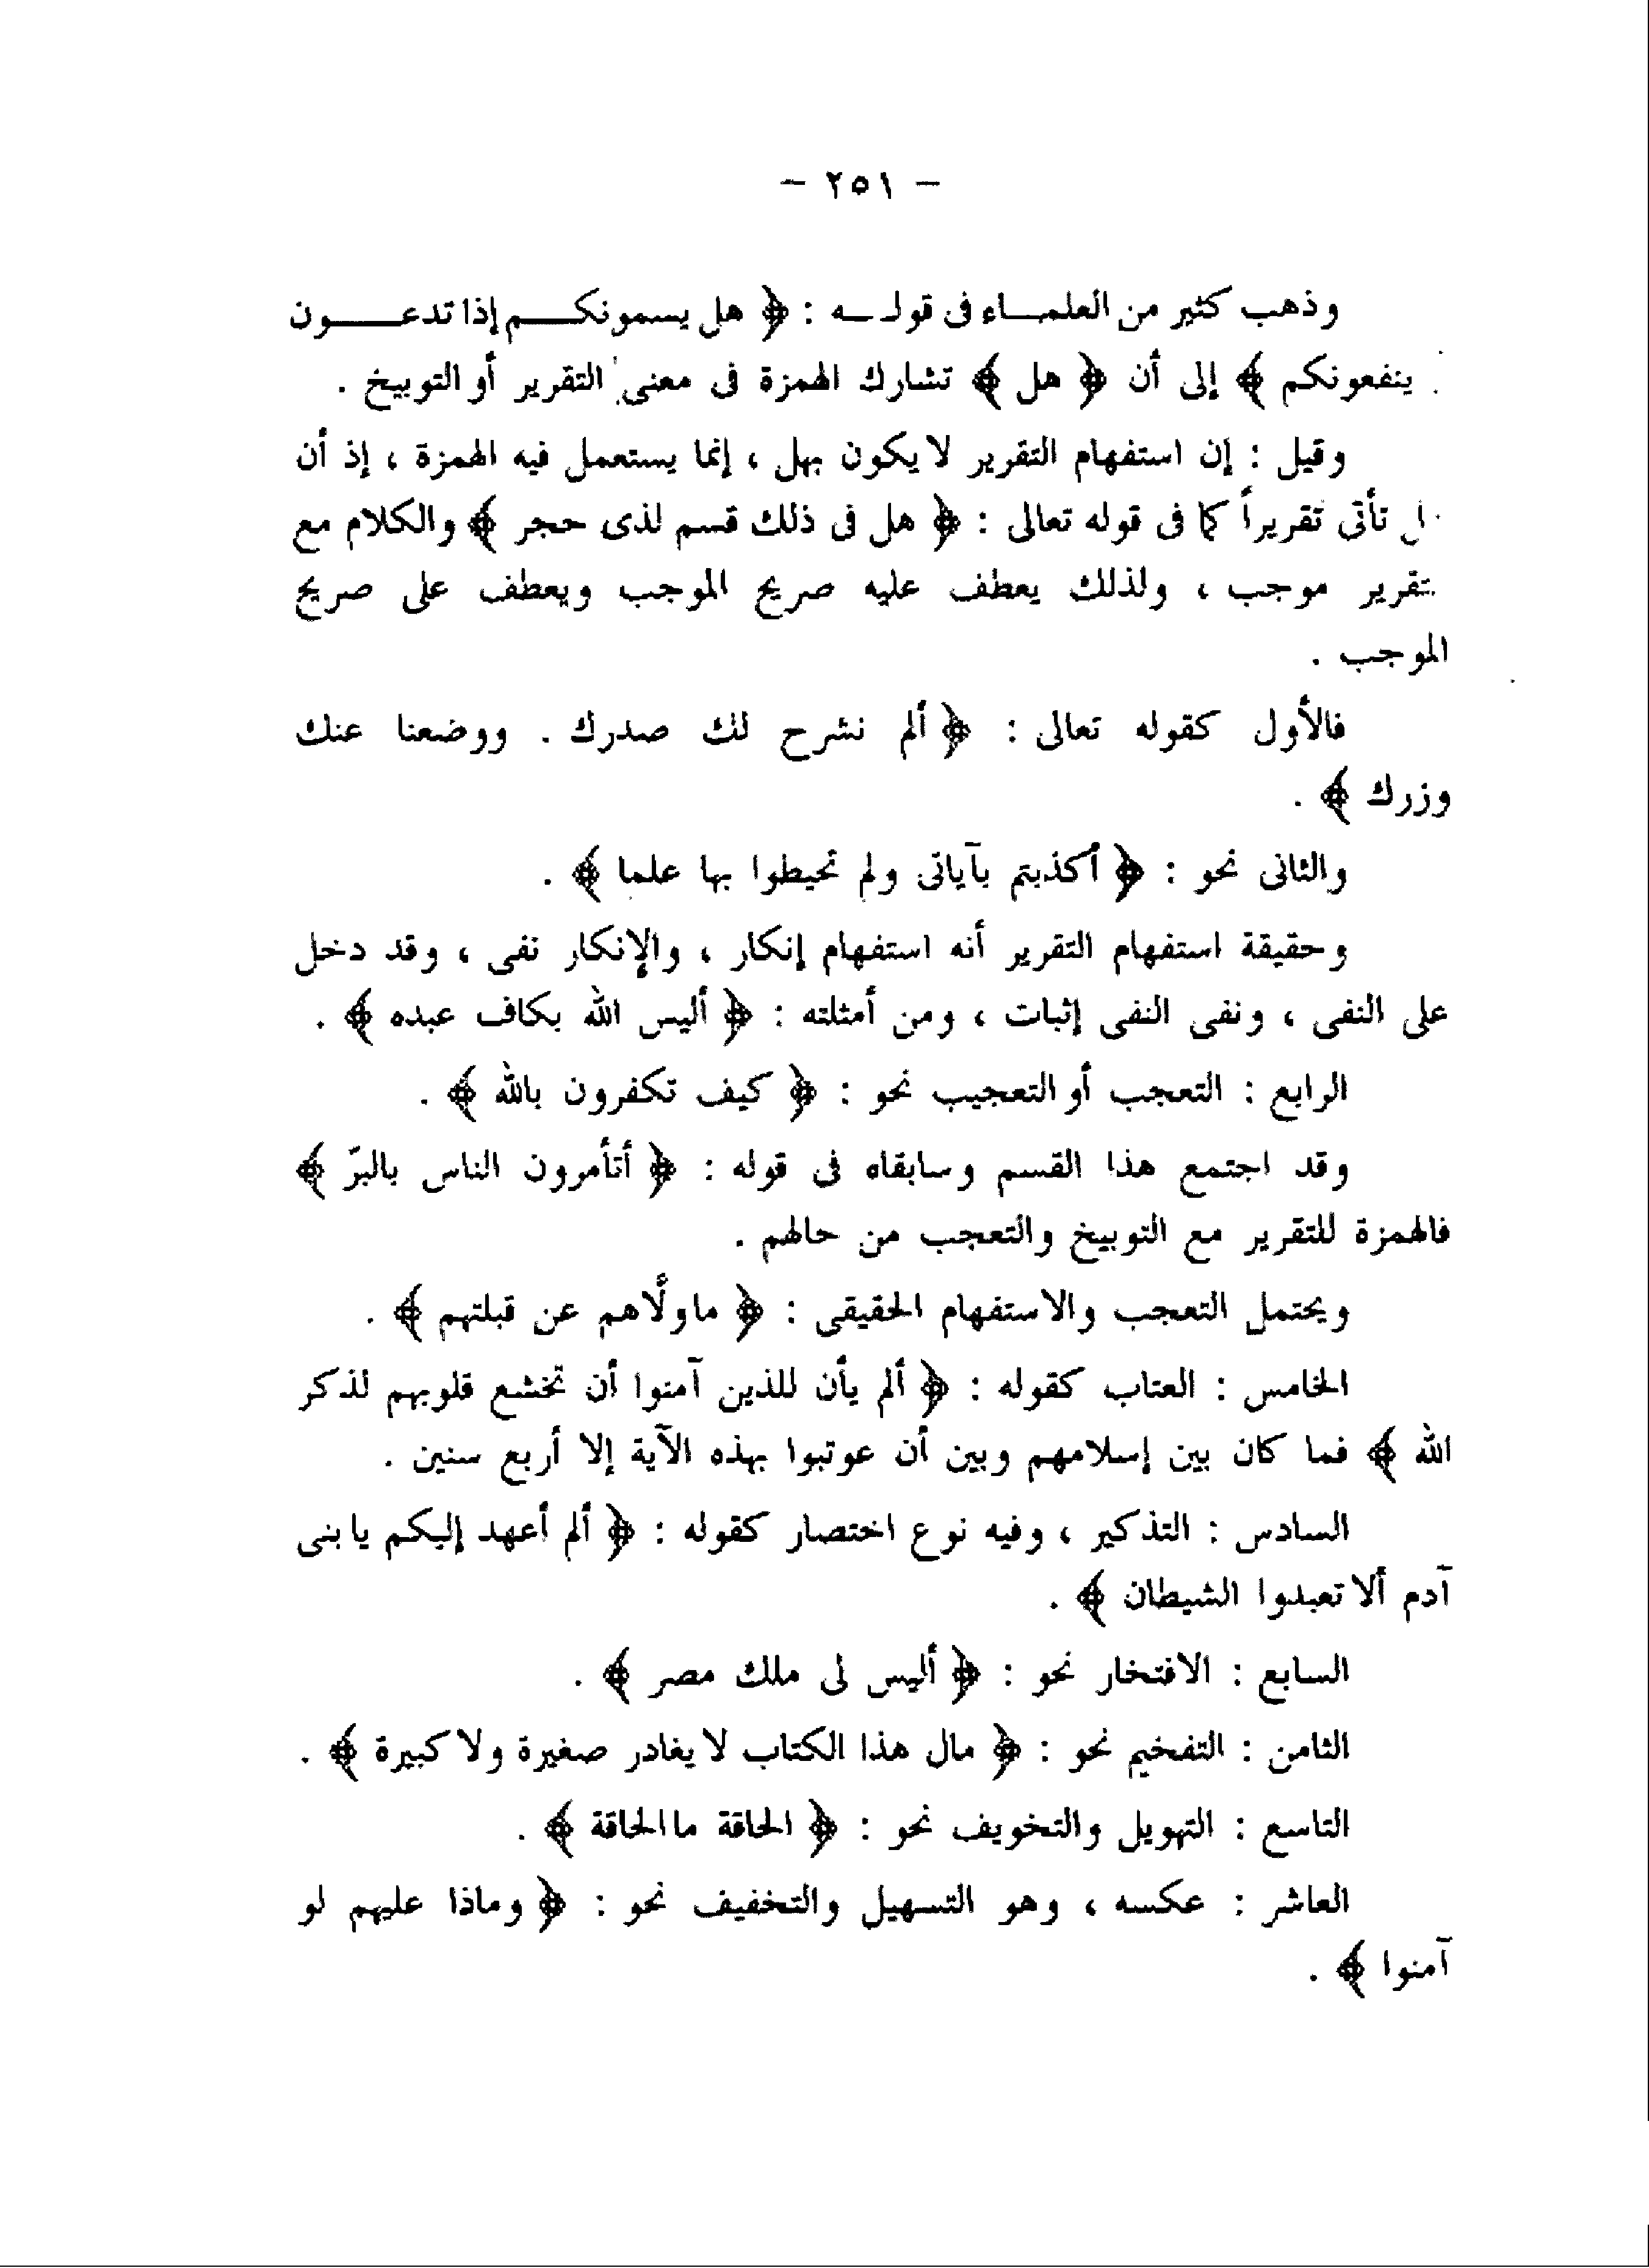 - ٢٥١ -
وذهب كثير من العلمــاء فى قولــه : ﴿ هل يسمونكــم إذا تدعــون
ينفعونكم ﴾ إلى أن ﴿ هل ﴾ تشارك الهمزة فى معنى التقرير أو التوبيخ .
وقيل : إن استفهام التقرير لا يكون بهل ، إنما يستعمل فيه الهمزة ، إذ أن
ل تأتى تقريراً كما فى قوله تعالى : ﴿ هل فى ذلك قسم لذى حجر ﴾ والكلام مع
تقرير موجب ، ولذلك يعطف عليه صريح الموجب ويعطف على صريح
الموجب .
فالأول كقوله تعالى : ﴿ ألم نشرح لك صدرك . ووضعنا عنك
وزرك ﴾ .
والثانى نحو : ﴿ أكذبتم بآياتى ولم تحيطوا بها علما ﴾ .
وحقيقة استفهام التقرير أنه استفهام إنكار ، والإنكار نفى ، وقد دخل
على النفى ، ونفى النفى إثبات ، ومن أمثلته : ﴿ أليس الله بكاف عبده ﴾ .
الرابع : التعجب أو التعجيب نحو : ﴿ كيف تكفرون بالله ﴾ .
وقد اجتمع هذا القسم وسابقاه فى قوله : ﴿ أتأمرون الناس بالبرّ ﴾
فالهمزة للتقرير مع التوبيخ والتعجب من حالهم .
ويحتمل التعجب والاستفهام الحقيقى : ﴿ ماولَّاهم عن قبلتهم ﴾ .
الخامس : العتاب كقوله : ﴿ ألم يأن للذين آمنوا أن تخشع قلوبهم لذكر
الله ﴾ فما كان بين إسلامهم وبين أن عوتبوا بهذه الآية إلا أربع سنين .
السادس : التذكير ، وفيه نوع اختصار كقوله : ﴿ ألم أعهد إليكم يا بنى
آدم ألا تعبدوا الشيطان ﴾ .
السابع : الافتخار نحو : ﴿ أليس لى ملك مصر ﴾ .
الثامن : التفخيم نحو : ﴿ مال هذا الكتاب لا يغادر صغيرة ولا كبيرة ﴾ .
التاسع : التهويل والتخويف نحو : ﴿ الحاقة ما الحاقة ﴾ .
العاشر : عكسه ، وهو التسهيل والتخفيف نحو : ﴿ وماذا عليهم لو
آمنوا ﴾ .